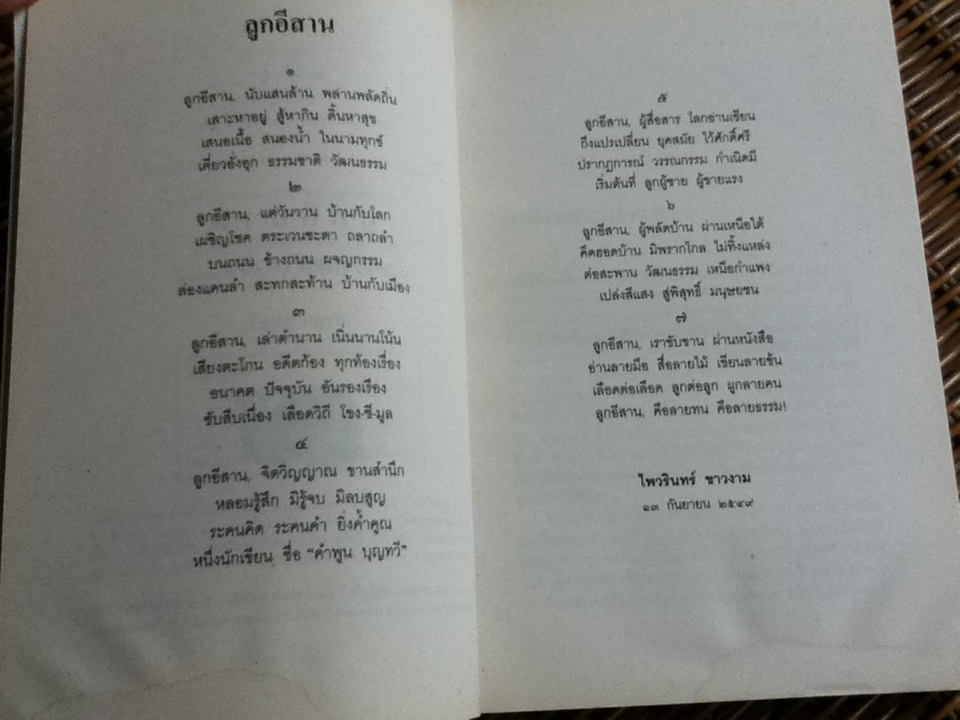 ลูกอีสาน
๑
ลูกอีสาน, นับแสนล้าน พล่านพลัดถิ่น
เสาะหาอยู่ สู้หากิน ดิ้นหาสุข
เสนอเนื้อ สนองน้ำ ในนามทุกข์
เคี่ยวอั่งอุก ธรรมชาติ วัฒนธรรม
๒
ลูกอีสาน, แต่วันวาน บ้านกับโลก
เผชิญโชค ตระเวนชะตา ถลาถลำ
บนถนน ข้างถนน ผจญกรรม
ล่องแคนลำ สะทกสะท้าน บ้านกับเมือง
๓
ลูกอีสาน, เล่าตำนาน เนิ่นนานโน้น
เสียงตะโกน อดีตก้อง ทุกท้องเรื่อง
อนาคต ปัจจุบัน อันรองเรือง
ซับสืบเนื่อง เลือดวิถี โขง-ชี-มูล
๔
ลูกอีสาน, จิตวิญญาณ ขานสำนึก
หลอมรู้สึก มิรู้จบ มิลบสูญ
ระคนคิด ระคนคำ ยิ่งค้ำคูณ
หนึ่งนักเขียน ชื่อ "คำพูน บุญทวี"
๕
ลูกอีสาน, ผู้สื่อสาร โลกอ่านเขียน
ถึงแปรเปลี่ยน ยุคสมัย ไว้ศักดิ์ศรี
ปรากฏการณ์ วรรณกรรม กำเนิดมี
เริ่มต้นที่ ลูกผู้ชาย ผู้ขายแรง
๖
ลูกอีสาน, ผู้พลัดบ้าน ผ่านเหนือใต้
คึดฮอดบ้าน มิพรากไกล ไม่ทิ้งแหล่ง
ต่อสะพาน วัฒนธรรม เหนือกำแพง
เปล่งสีแสง สู่พิสุทธิ์ มนุษยชน
๗
ลูกอีสาน, เราขับขาน ผ่านหนังสือ
อ่านลายมือ สื่อลายไม้ เขียนลายข้น
เลือดต่อเลือด ลูกต่อลูก ผูกลายคน
ลูกอีสาน, คือลายทน คือลายธรรม!
ไพวรินทร์ ขาวงาม
๑๓ กันยายน ๒๕๔๙